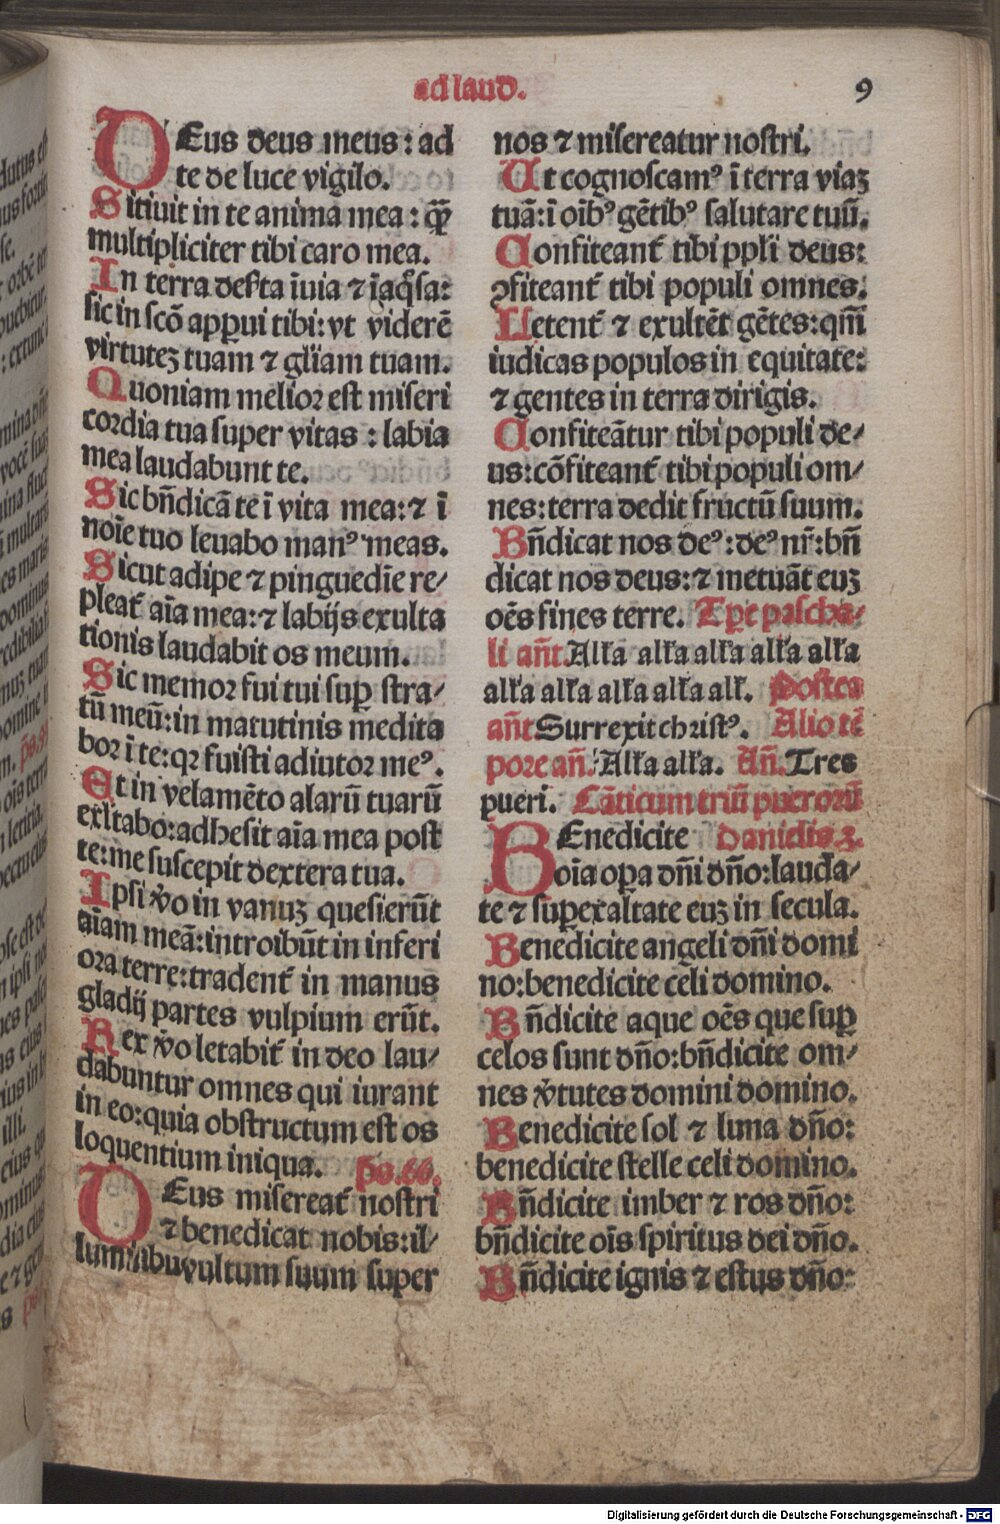 ad laud.
9
DEus deus meus : ad
te de luce vigilo.
Sitiuit in te anima mea : qȝ̄
multipliciter tibi caro mea.
In terra deſ̄ta īuia ⁊ īaq̊sa:
sic in scō apꝑui tibi: vt viderē
virtuteȝ tuam ⁊ gl̄iam tuam.
Quoniam melior est miseri
cordia tua super vitas : labia
mea laudabunt te.
Sic bn̄dicā te ī vita mea: ⁊ ī
noīe tuo leuabo manꝰ meas.
Sicut adipe ⁊ pinguedīe re/
pleat᷑ aīa mea: ⁊ labijs exulta
tionis laudabit os meum.
Sic memor fui tui suꝑ stra/
tū meū: in matutinis medita
bor ī te: qꝛ fuisti adiutor meꝰ.
Et in velamēto alarū tuarū
exl̄tabo: adhesit aīa mea post
te: me suscepit dextera tua.
Ipsi v̊o in vanuȝ quesierūt
aīam meā: introibūt in inferi
ora terre: tradent᷑ in manus
gladij partes vulpium erūt.
Rex v̊o letabit᷑ in deo lau/
dabuntur omnes qui iurant
in eo: quia obstructum est os
loquentium iniqua. ps.66.
DEus misereat᷑ nostri
⁊ benedicat nobis: il/
vultum suum super
nos ⁊ misereatur nostri.
Ut cognoscamꝰ ī terra viaȝ
tuā: ī oībꝰ gētibꝰ salutare tuū.
Confiteant᷑ tibi ppl̄i deus:
ꝯfiteant᷑ tibi populi omnes.
Letent᷑ ⁊ exultēt gētes: qm̄
iudicas populos in equitate:
⁊ gentes in terra dirigis.
Confiteātur tibi populi de/
us: cōfiteant᷑ tibi populi om/
nes: terra dedit fructū suum.
Bn̄dicat nos deꝰ: deꝰ nr̄: bn̄
dicat nos deus: ⁊ metuāt euȝ
oēs fines terre. Tꝑe pascha/
li an̄t. All'a all'a all'a all'a all'a
all'a all'a all'a all'a all'. Postea
an̄t Surrexit christꝰ. Alio tē
pore an̄. All'a all'a. An̄. Tres
pueri. Cāticum triū puerorū
BEnedicite danielis 3.
oīa oꝑa dn̄i dn̄o: lauda/
te ⁊ suꝑexaltate euȝ in secula.
Benedicite angeli dn̄i domi
no: benedicite celi domino.
Bn̄dicite aque oēs que suꝑ
celos sunt dn̄o: bn̄dicite om/
nes v̊tutes domini domino.
Benedicite sol ⁊ luna dn̄o:
benedicite stelle celi domino.
Bn̄dicite imber ⁊ ros dn̄o:
bn̄dicite oīs spiritus dei dn̄o.
Bn̄dicite ignis ⁊ estus dn̄o:
Digitalisierung gefördert durch die Deutsche Forschungsgemeinschaft - DFG